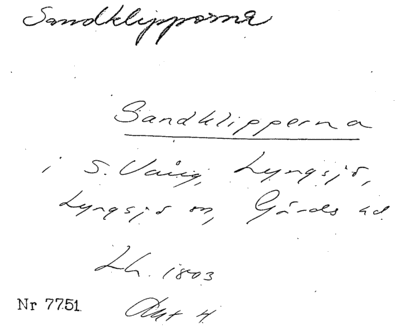 Sandklipporna
Sandklipperna
i S. Vång, Lyngsjö,
Lyngsjö sn, Gärds hd
Lh. 1803
Akt 4
Nr 7751.